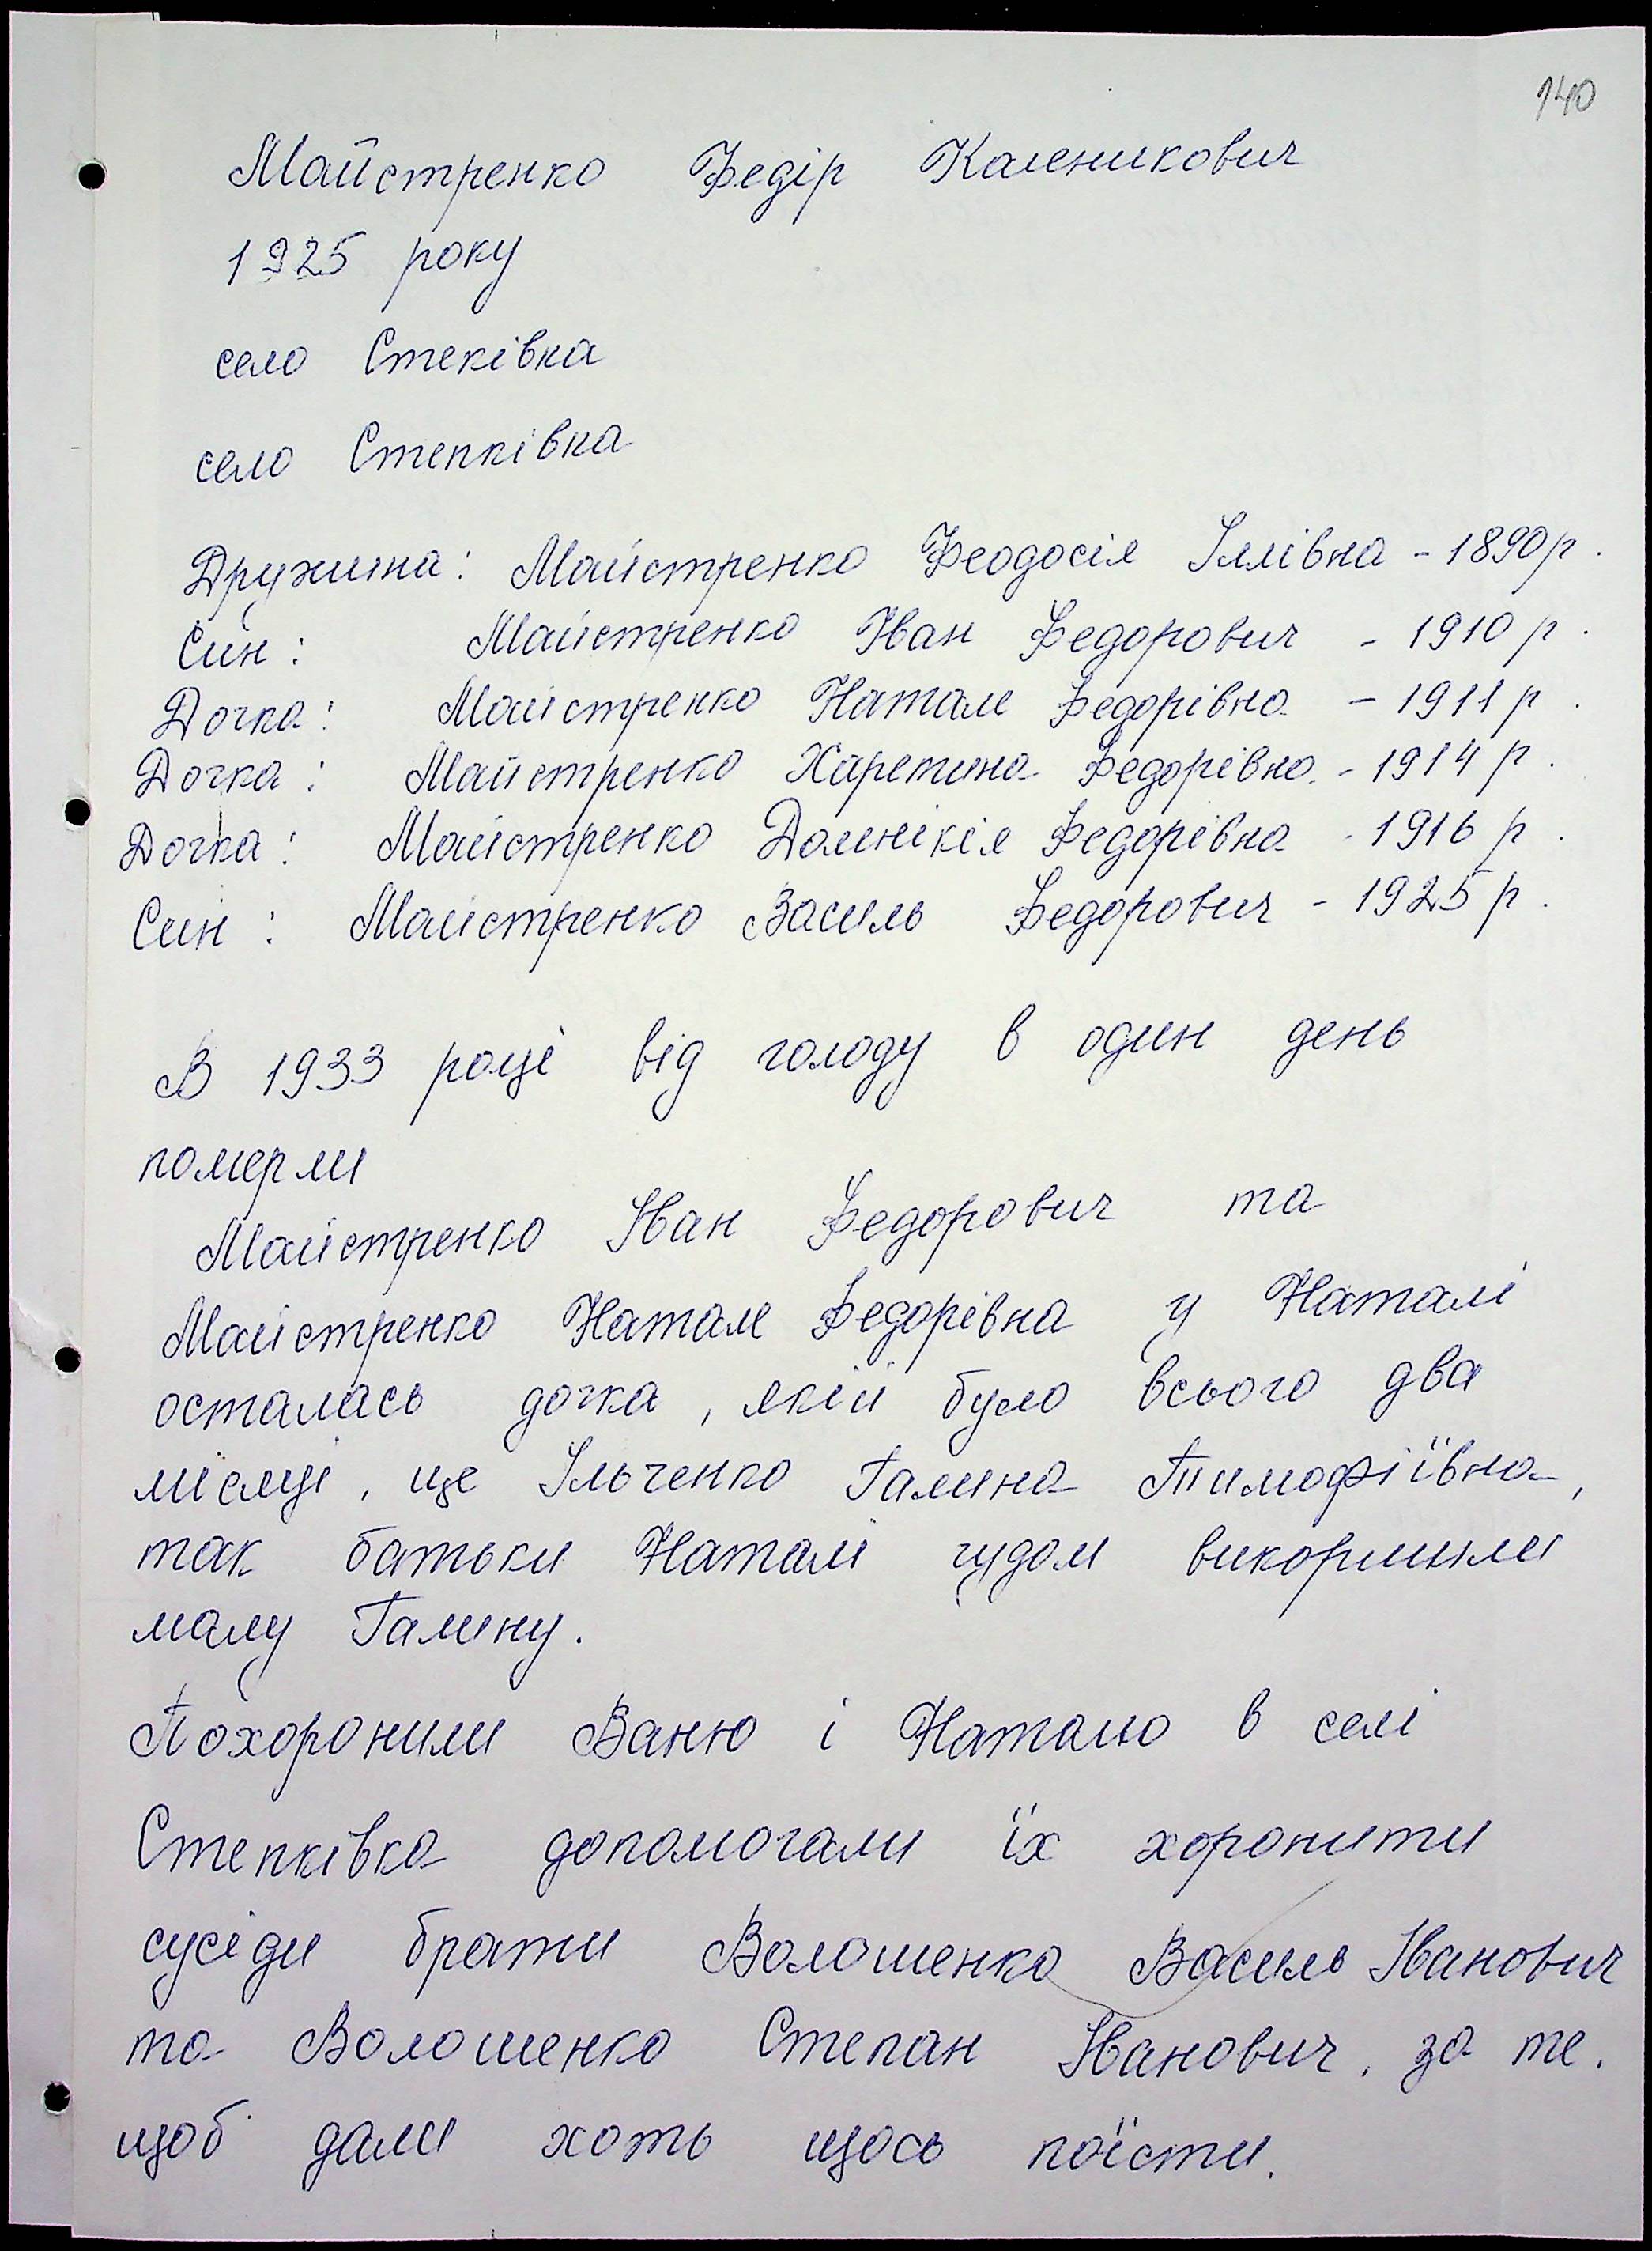 140
Майстренко Федір Каленикович
1925 року
село Стеківка
село Степківка
Дружина: Майстренко Феодосія Іллівна - 1890 р.
Син: Майстренко Іван Федорович - 1910 р.
Дочка: Майстренко Наталя Федорівна - 1911 р.
Дочка: Майстренко Харетина Федорівна - 1914 р.
Дочка: Майстренко Домнікія Федорівна - 1916 р.
Син: Майстренко Василь Федорович - 1925 р.
В 1933 році від голоду в один день
померли
Майстренко Іван Федорович та
Майстренко Наталя Федорівна у Наталі
осталась дочка, якій було всього два
місяці, це Ільченко Галина Тимофіївна,
так батьки Наталі чудом викормили
малу Галину.
Похоронили Ваню і Наталю в селі
Степківка допомогали їх хоронити
сусіди брати Волошенко Василь Іванович
та Волошенко Степан Іванович, за те.
щоб дали хоть щось поїсти.